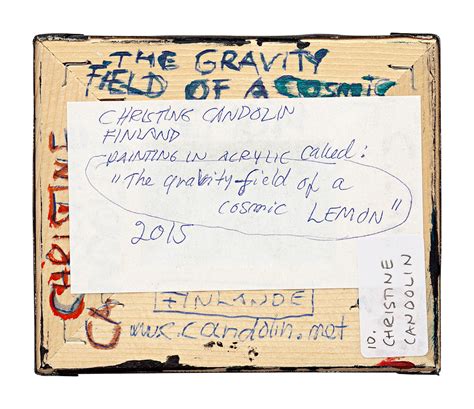 THE GRAVITY
FIELD OF A COSMIC
CHRISTINE CANDOLIN
FINLAND
PAINTING IN ACRYLIC called:
"The gravity-field of a
cosmic LEMON"
2015
CHRISTINE
CA
FINLANDE
www.candolin.net
10.
CHRISTINE
CANDOLIN